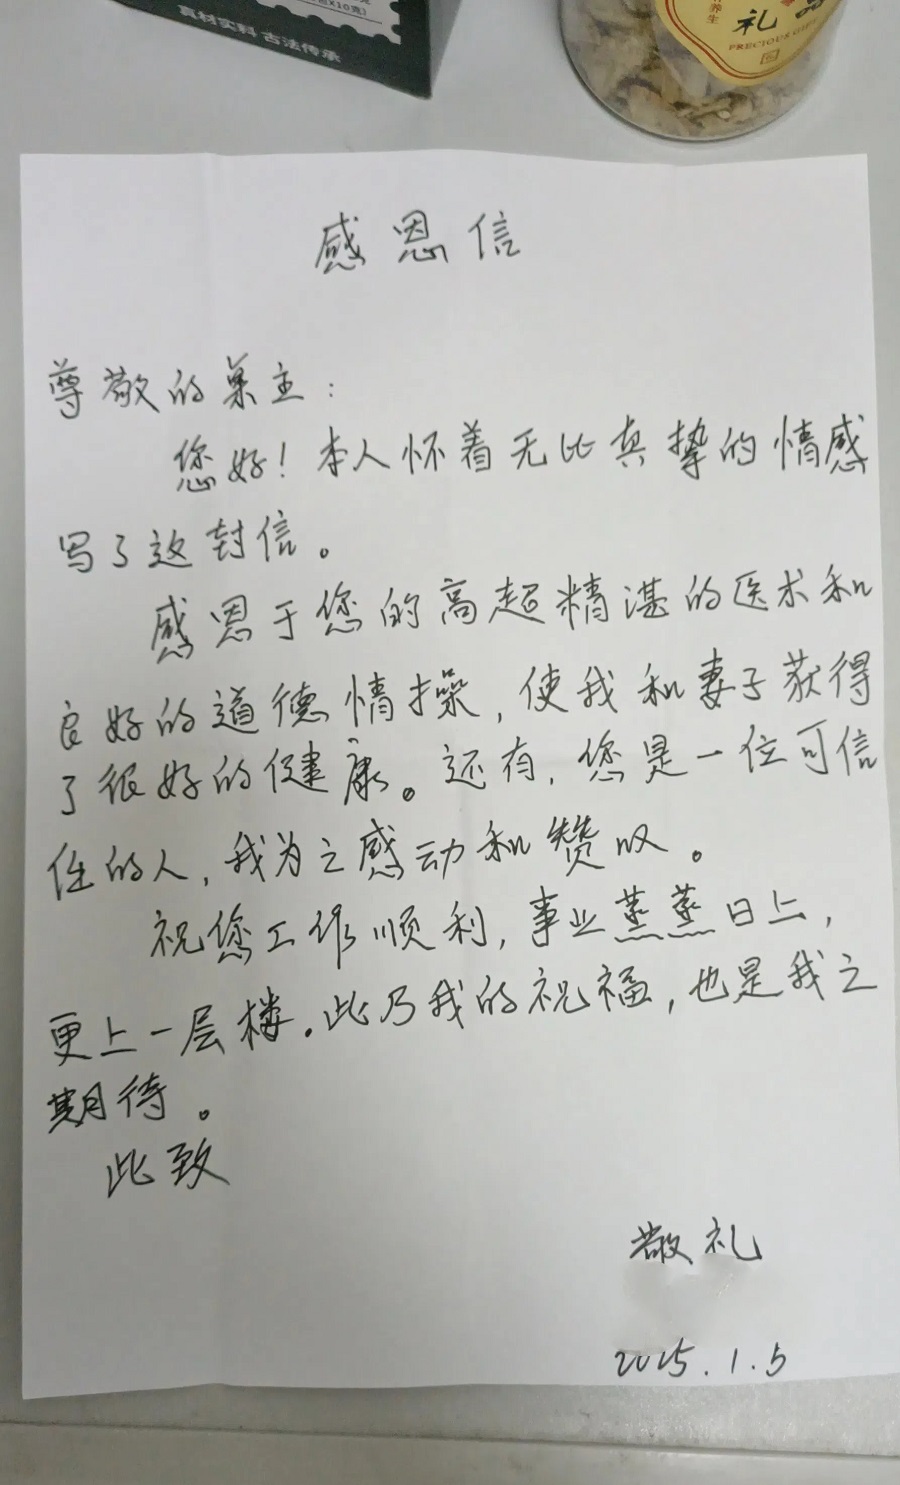 真材实料 古法传承
养生
礼品
PRECIOUS GI
感恩信
尊敬的巢主：
您好！本人怀着无比真挚的情感
写了这封信。
感恩于您的高超精湛的医术和
良好的道德情操，使我和妻子获得
了很好的健康。还有，您是一位可信
任的人，我为之感动和赞叹。
祝您工作顺利，事业蒸蒸日上，
更上一层楼。此乃我的祝福，也是我之
期待。
此致
敬礼
2025.1.5